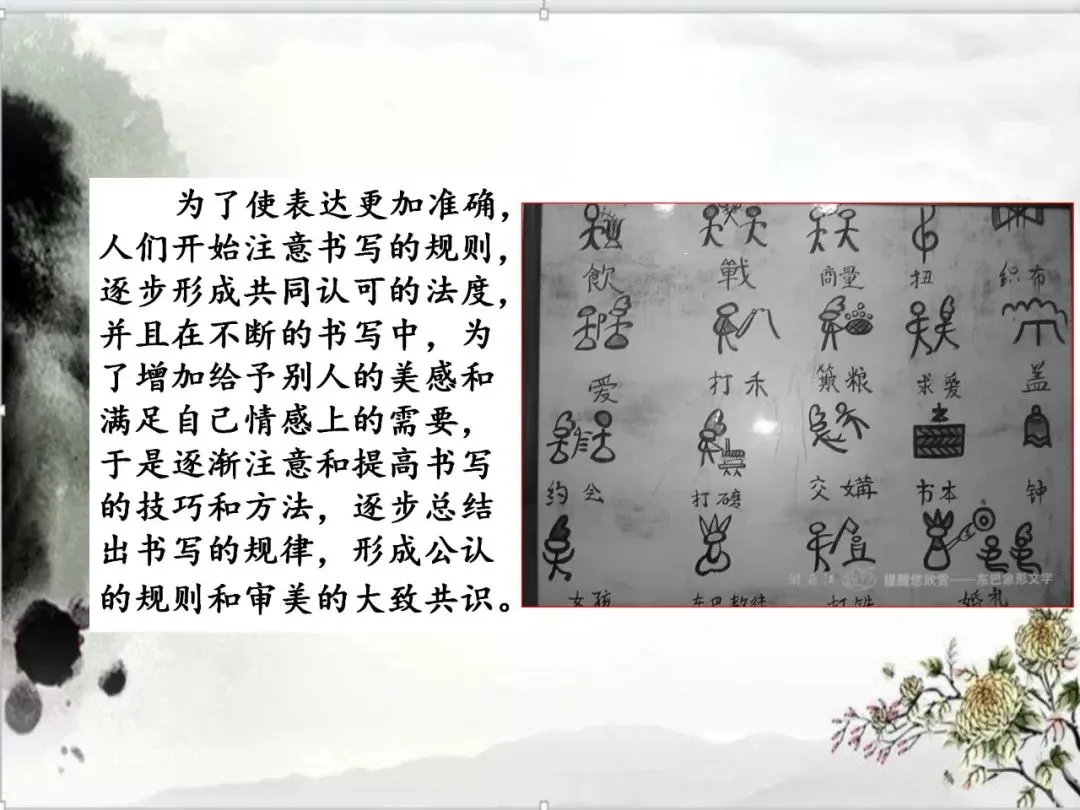 为了使表达更加准确，
人们开始注意书写的规则，
逐步形成共同认可的法度，
并且在不断的书写中，为
了增加给予别人的美感和
满足自己情感上的需要，
于是逐渐注意和提高书写
的技巧和方法，逐步总结
出书写的规律，形成公认
的规则和审美的大致共识。
飲 戰 商量 扭 织布
爱 打禾 簸粮 求爱 盖
约会 打磨 交媾 书本 钟
提醒您欣赏——东巴象形文字
女孩 东巴教徒 打铁 婚礼